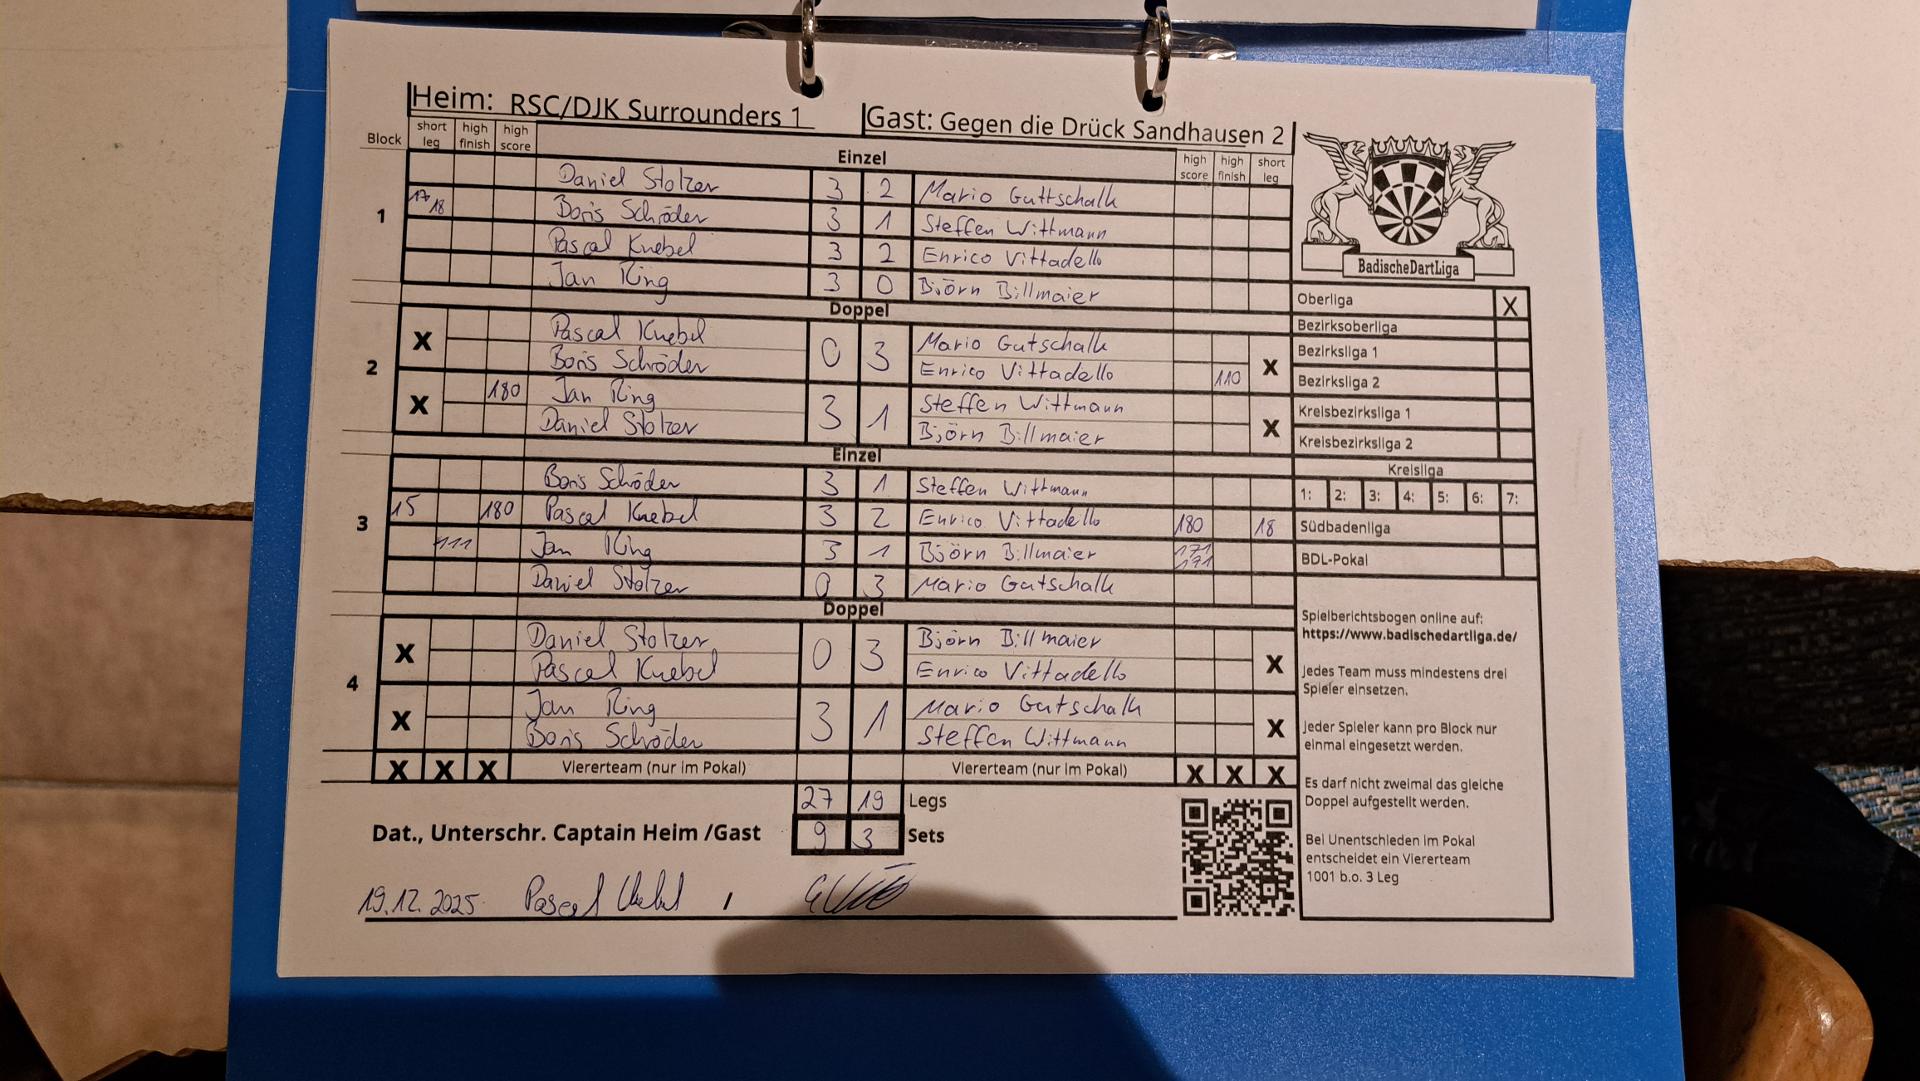 Heim: RSC/DJK Surrounders 1 Gast: Gegen die Drück Sandhausen 2
Block short leg high finish high score Einzel high score high finish short leg
1
Daniel Stolzer 3 2 Mario Guttschalk
17 18 Boris Schröder 3 1 Steffen Wittmann
Pascal Knebel 3 2 Enrico Vittadello
Jan Ring 3 0 Björn Billmaier
Doppel
2
X Pascal Knebel 0 3 Mario Gutschalk X
Boris Schröder Enrico Vittadello 110
X 180 Jan Ring 3 1 Steffen Wittmann X
Daniel Stolzer Björn Billmaier
Einzel
3
Boris Schröder 3 1 Steffen Wittmann
15 180 Pascal Knebel 3 2 Enrico Vittadello 180 18
111 Jan Ring 3 1 Björn Billmaier 171 171
Daniel Stolzer 0 3 Mario Gutschalk
Doppel
4
X Daniel Stolzer 0 3 Björn Billmaier X
Pascal Knebel Enrico Vittadello
X Jan Ring 3 1 Mario Gutschalk X
Boris Schröder Steffen Wittmann
X X X Viererteam (nur im Pokal) Viererteam (nur im Pokal) X X X
27 19 Legs
Dat., Unterschr. Captain Heim /Gast 9 3 Sets
19.12.2025 Pascal Knebel ,
BadischeDartLiga
Oberliga X
Bezirksoberliga
Bezirksliga 1
Bezirksliga 2
Kreisbezirksliga 1
Kreisbezirksliga 2
Kreisliga
1: 2: 3: 4: 5: 6: 7:
Südbadenliga
BDL-Pokal
Spielberichtsbogen online auf:
https://www.badischedartliga.de/
Jedes Team muss mindestens drei
Spieler einsetzen.
Jeder Spieler kann pro Block nur
einmal eingesetzt werden.
Es darf nicht zweimal das gleiche
Doppel aufgestellt werden.
Bei Unentschieden im Pokal
entscheidet ein Viererteam
1001 b.o. 3 Leg